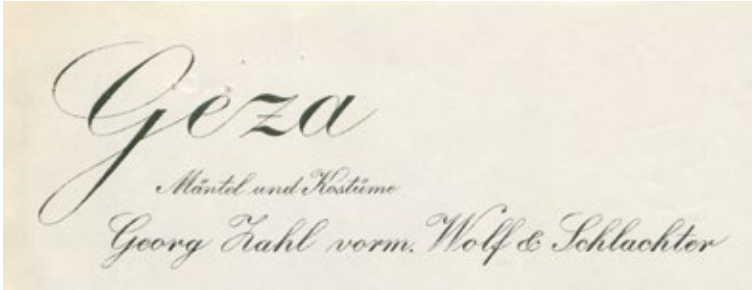 Geza
Mäntel und Kostüme
Georg Zahl vorm. Wolf & Schlachter